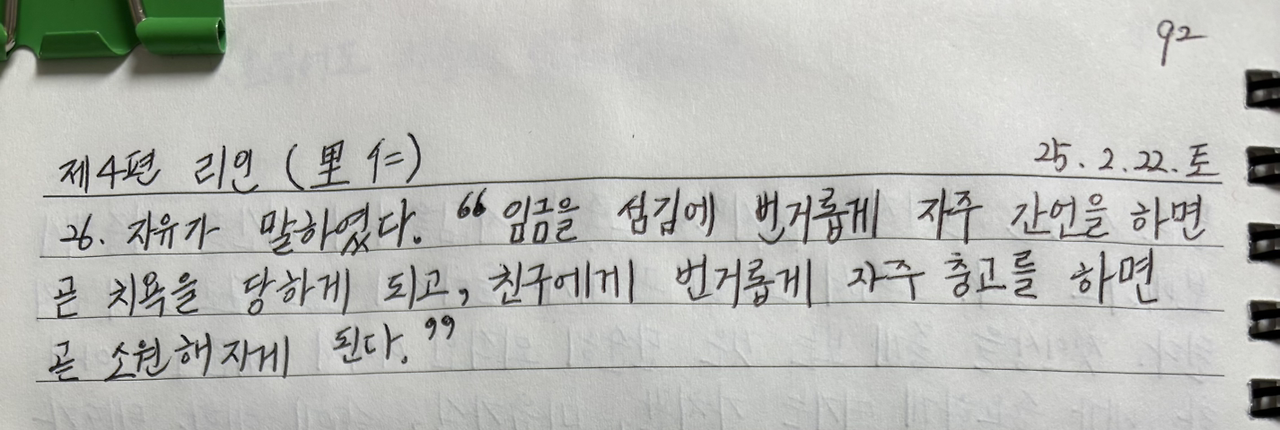 92
제4편 리인 (里仁) 25.2.22.토
26. 자유가 말하였다. “임금을 섬김에 번거롭게 자주 간언을 하면
곧 치욕을 당하게 되고, 친구에게 번거롭게 자주 충고를 하면
곧 소원해지게 된다.”